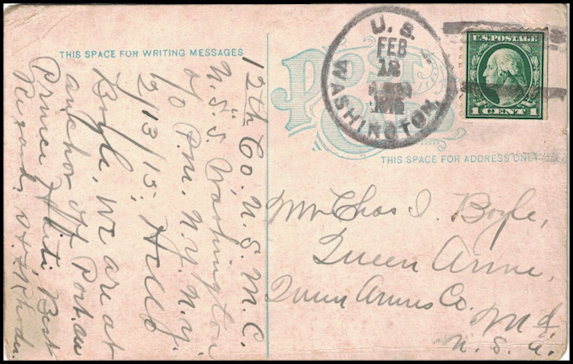 THIS SPACE FOR WRITING MESSAGES
12th Co. U.S.M.C.
U.S.S. Washington
c/o P.m. N.Y. N.Y.
2/13/15; Hello
Boyle, we are at
anchor off Port au
Prince Haiti Best
Regards
POST
U.S.S.
FEB
12
1915
WASHINGTON.
U.S. POSTAGE
1 CENT 1
THIS SPACE FOR ADDRESS ONLY
Mr Chas I. Boyle,
Queen Anne,
Queen Annes Co.
Md
U.S.A.